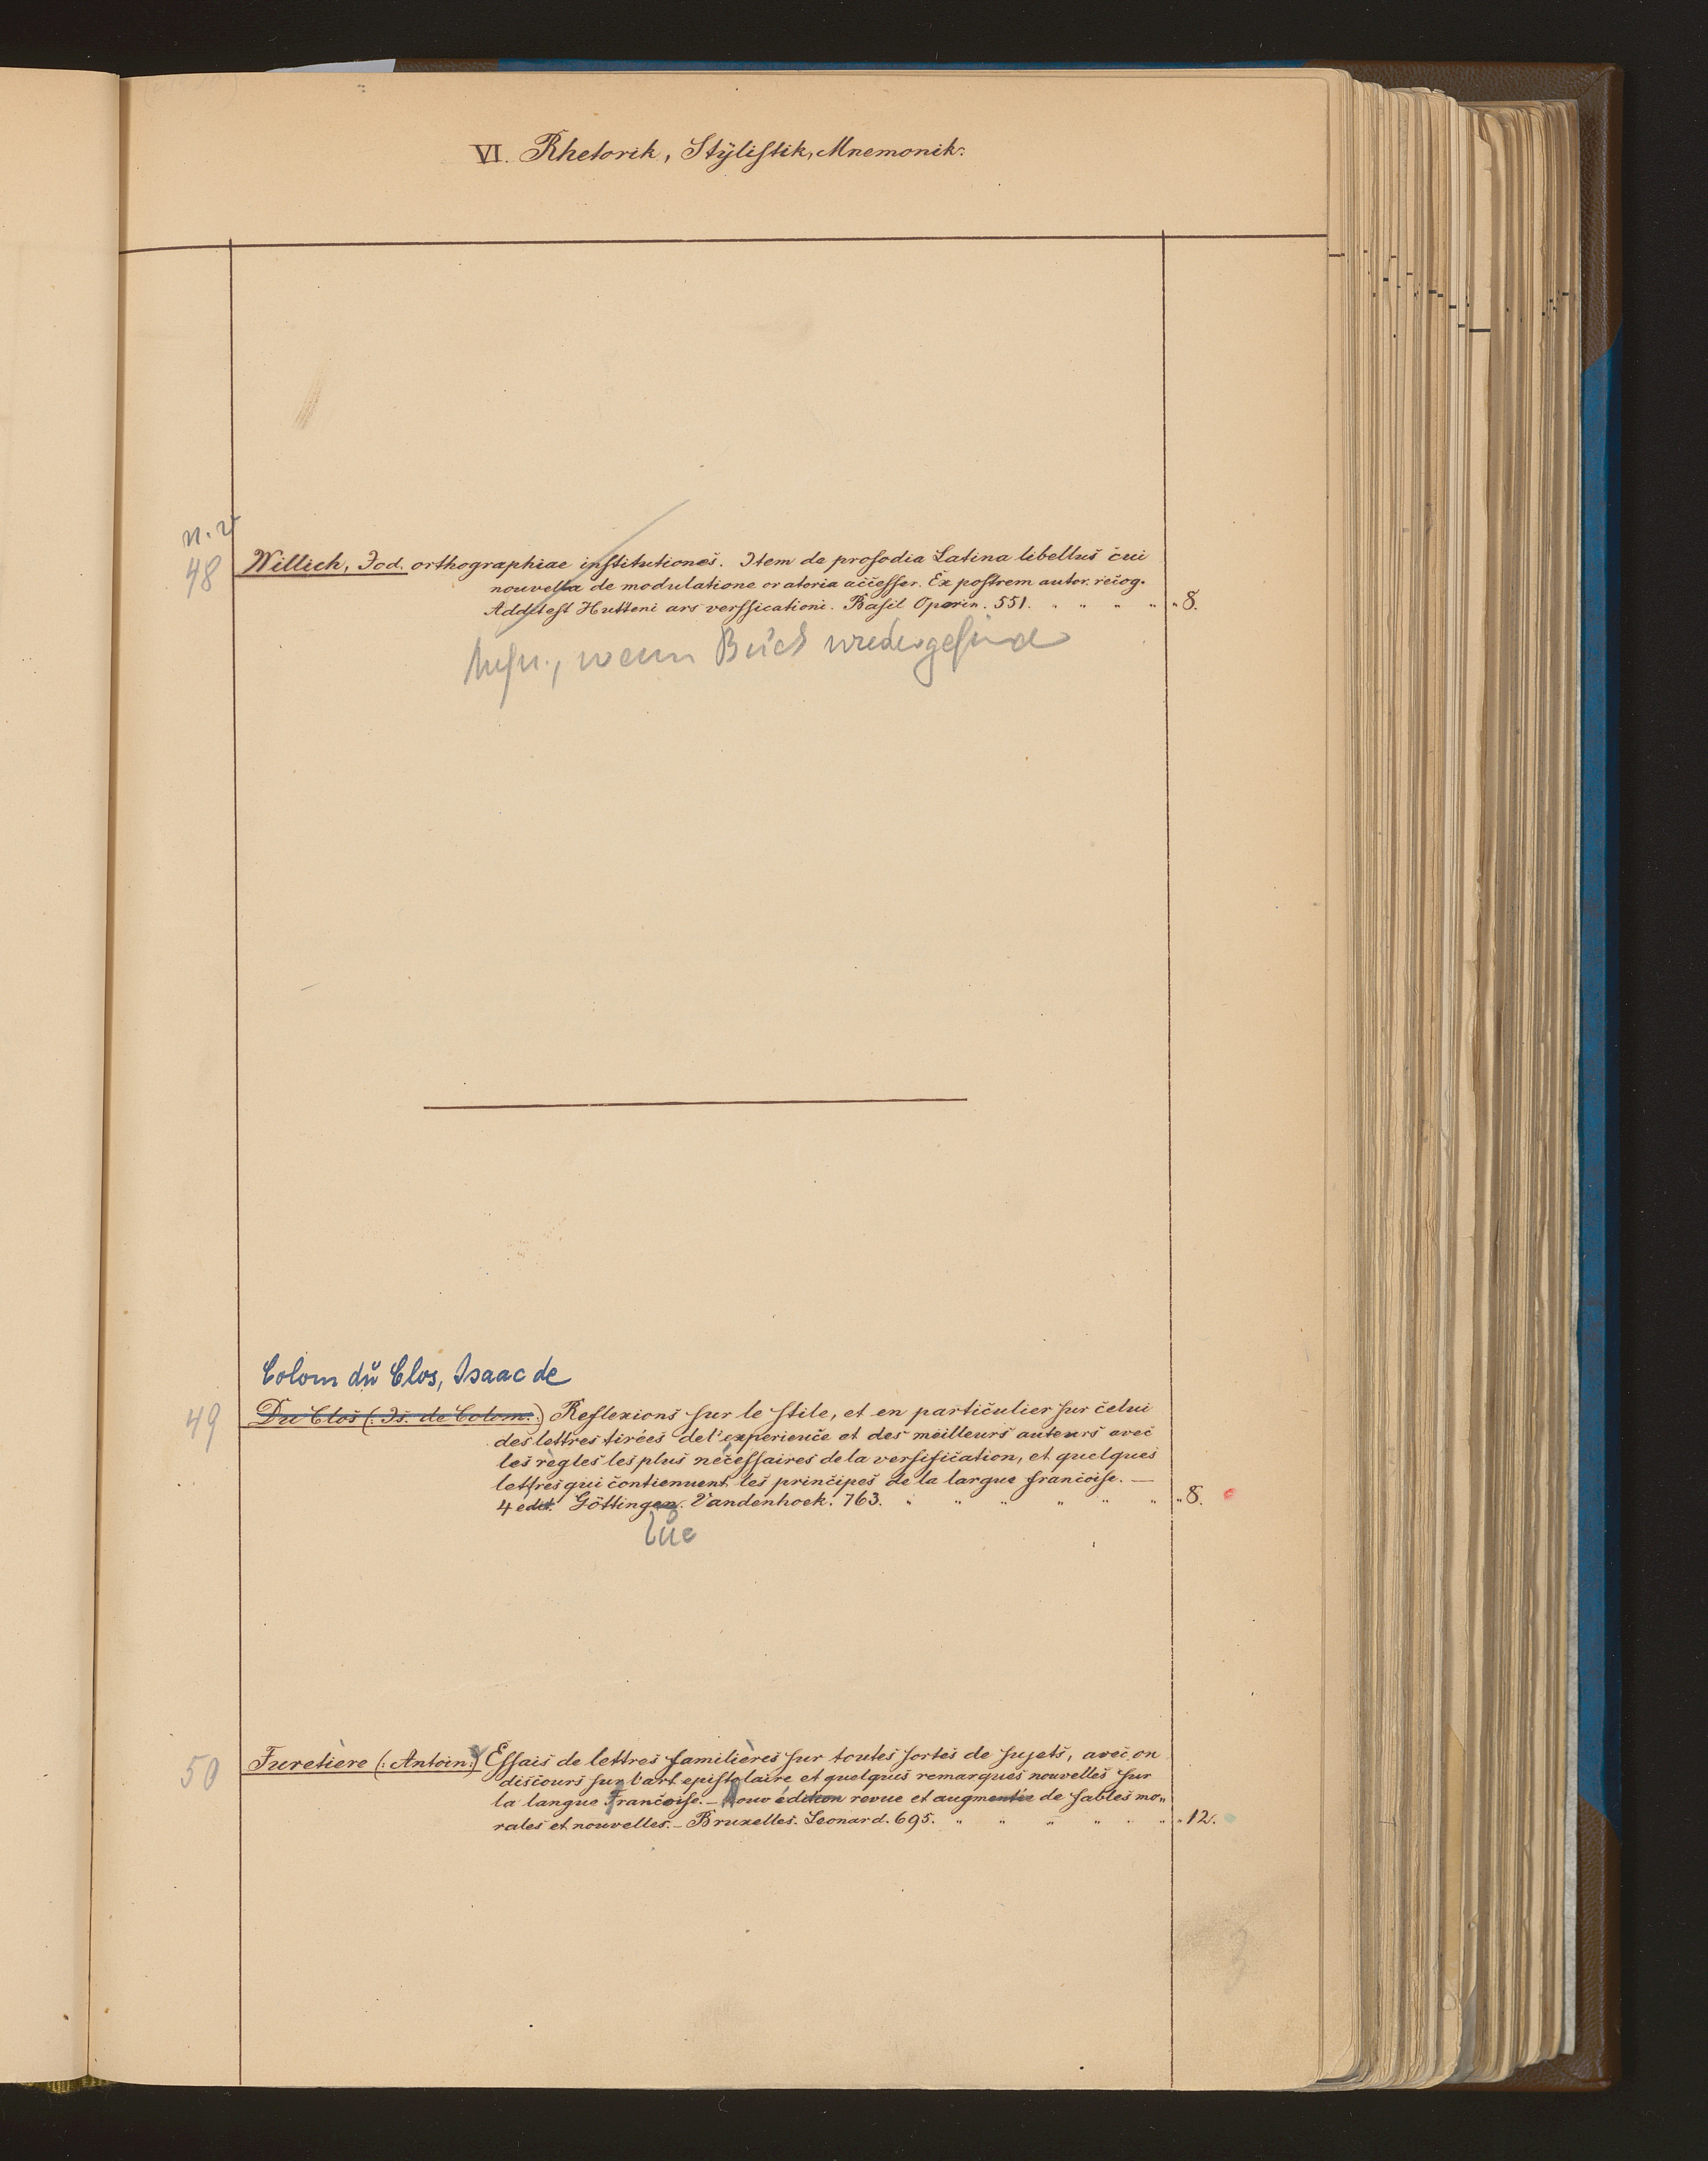 VI. Rhetorik, Stÿlistik, Mnemonik.
n. v
48
Willich, Jod. orthographiae institutiones. Item de prosodia Latina libellus cui
nouvella de modulatione oratoria accesser. Ex postrem autor. recog.
Addit est Hutteni ars verssicationi. Basil Oporin. 551. " " " " " 8.
wenn Buch wiedergefunde
Colom du Clos, Isaac de
49
Du Clos (: Is. de Colom.:) Reflexions sur le stile, et en particulier sur celui
des lettres tirées de l'experience et des meilleurs auteurs avec
les règles les plus nécessaires de la versification, et quelques
lettres qui contiennent les principes de la largue francoise. —
4 edit. Göttingen. Vandenhoek. 763. " " " " " " " 8.
50
Furetière (: Antoin:) Essais de lettres familières sur toutes sortes de sujets, avec on
discours sur l'art epistolaire et quelques remarques nouvelles sur
la langue Francoise. — Nouv édition revue et augmentée de fables mo„
rales et nouvelles. — Bruxelles. Leonard. 695. " " " " " " " 12.